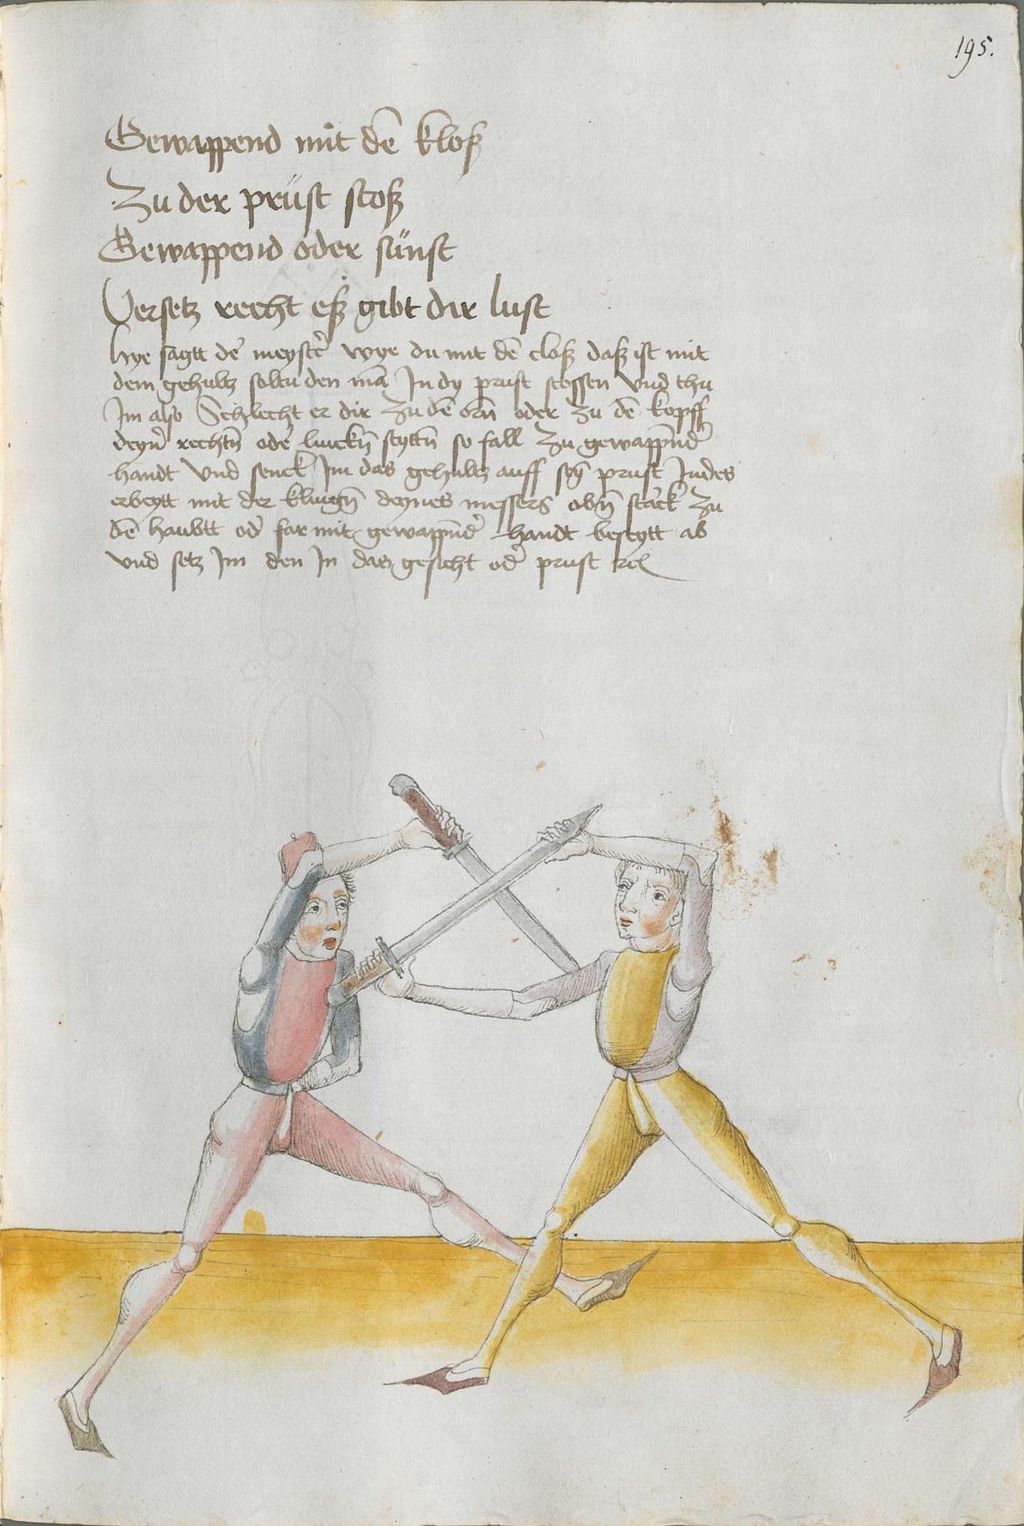 195.
Gewappend mit dē kloß
Zu der prüst stoß
Gewappend oder sünst
Versetz recht eß gibt dir lust
Hye sagtt der meyster wye du mit dē cloß daß ist mit
dem gehultz soltu den mā In dy prust stossen vnd thu
Im also Schlecht er dir zu dē orñ oder zu dē kopff
deyner rechtñ oder linckñ seyttñ so fall zu gewappñder
handt vnd senck Im das gehultz auff seyñ prust Indes
erbeytt mit der klingñ deynes messers obñ starck zu
dē haubtt oder far mit gewappñder handt beseytt ab
vnd setz Im den In das gesicht oder prust